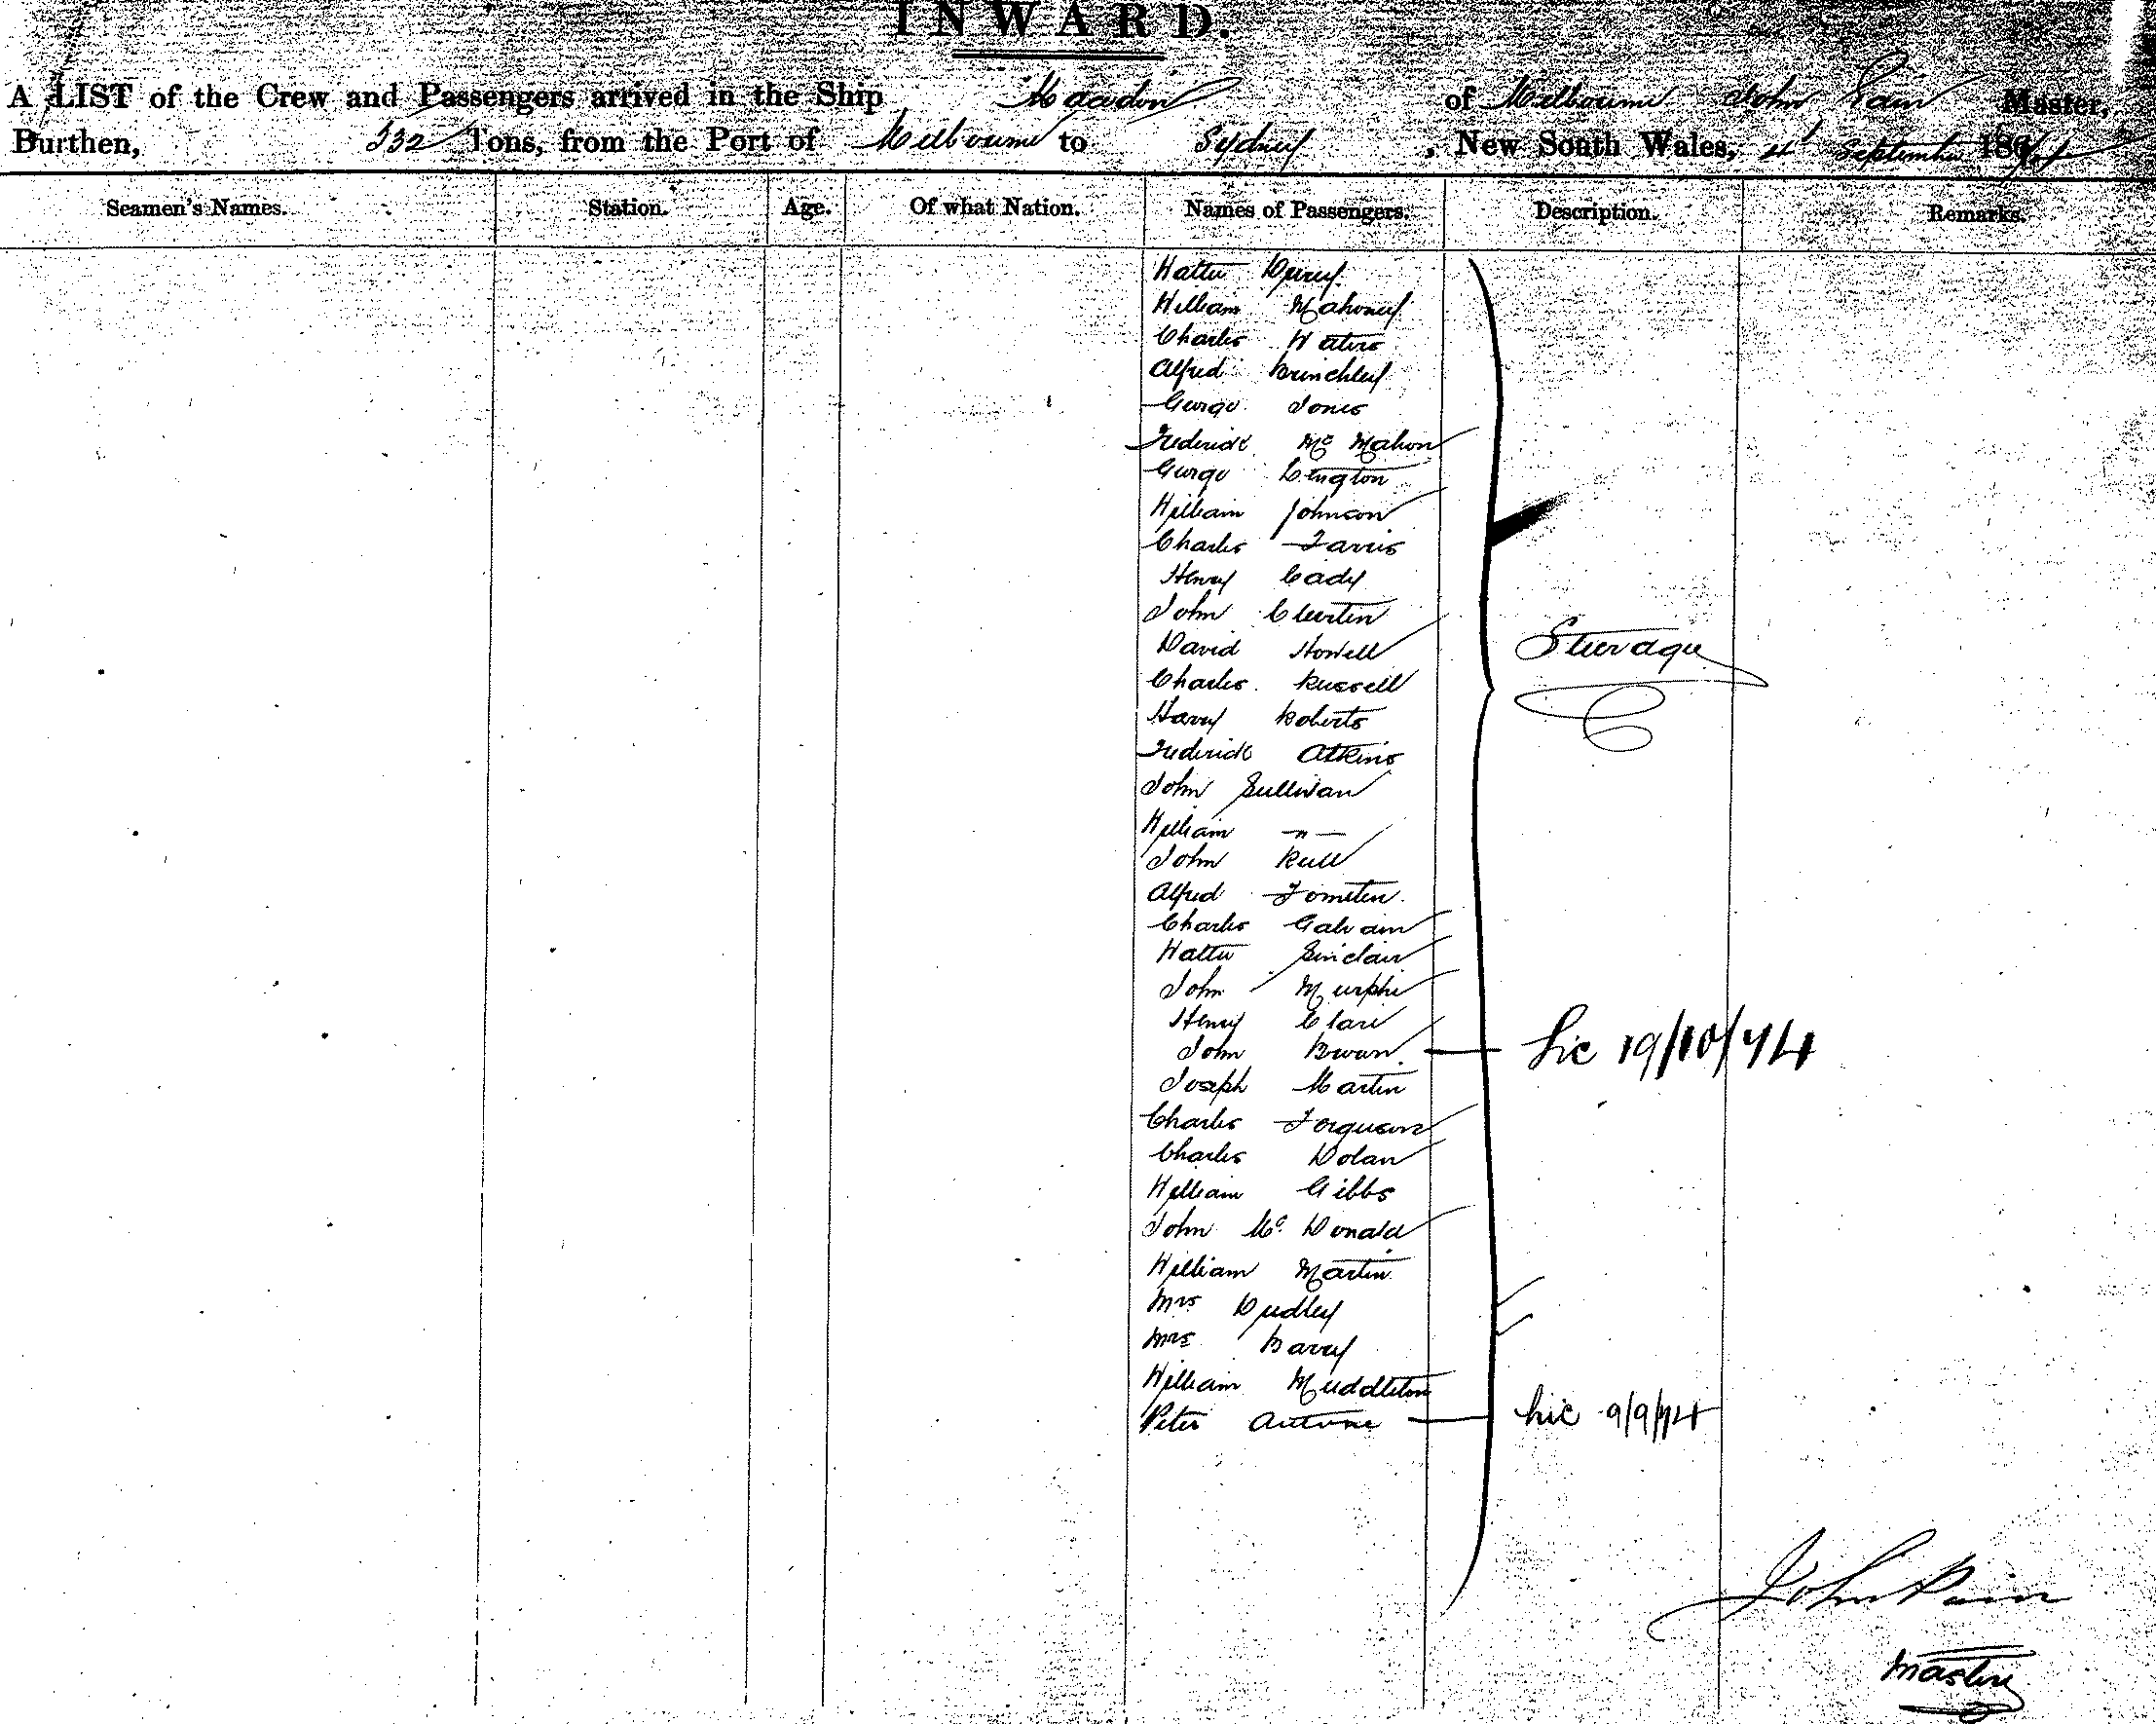 INWARD.
A LIST of the Crew and Passengers arrived in the Ship Macedon of Melbourne John Pain Master,
Burthen, 532 Tons, from the Port of Melbourne to Sydney, New South Wales, 4th September 1874
Seamen's Names. Station. Age. Of what Nation. Names of Passengers. Description. Remarks.
Walter
William Mahoney
Charles Waters
Alfred Brinchley
George Jones
Frederick Mc Mahon
George Lington
William Johnson
Charles Farris
Henry Cady
John
David Howell
Steerage
Charles Russell
Harry Roberts
Frederick Atkins
John Sullivan
William —"—
John
Alfred
Charles Galvain
Walter Sinclair
John Murphie
Henry Clare
John Lic 19/10/74
Joseph Martin
Charles Forguson
Charles Dolan
William Gibbs
John Mc Donald
William Martin
Mrs Dudley
Mrs Barry
William Muddleton
Peter Antone Lic 9/9/74
John Pain
Master